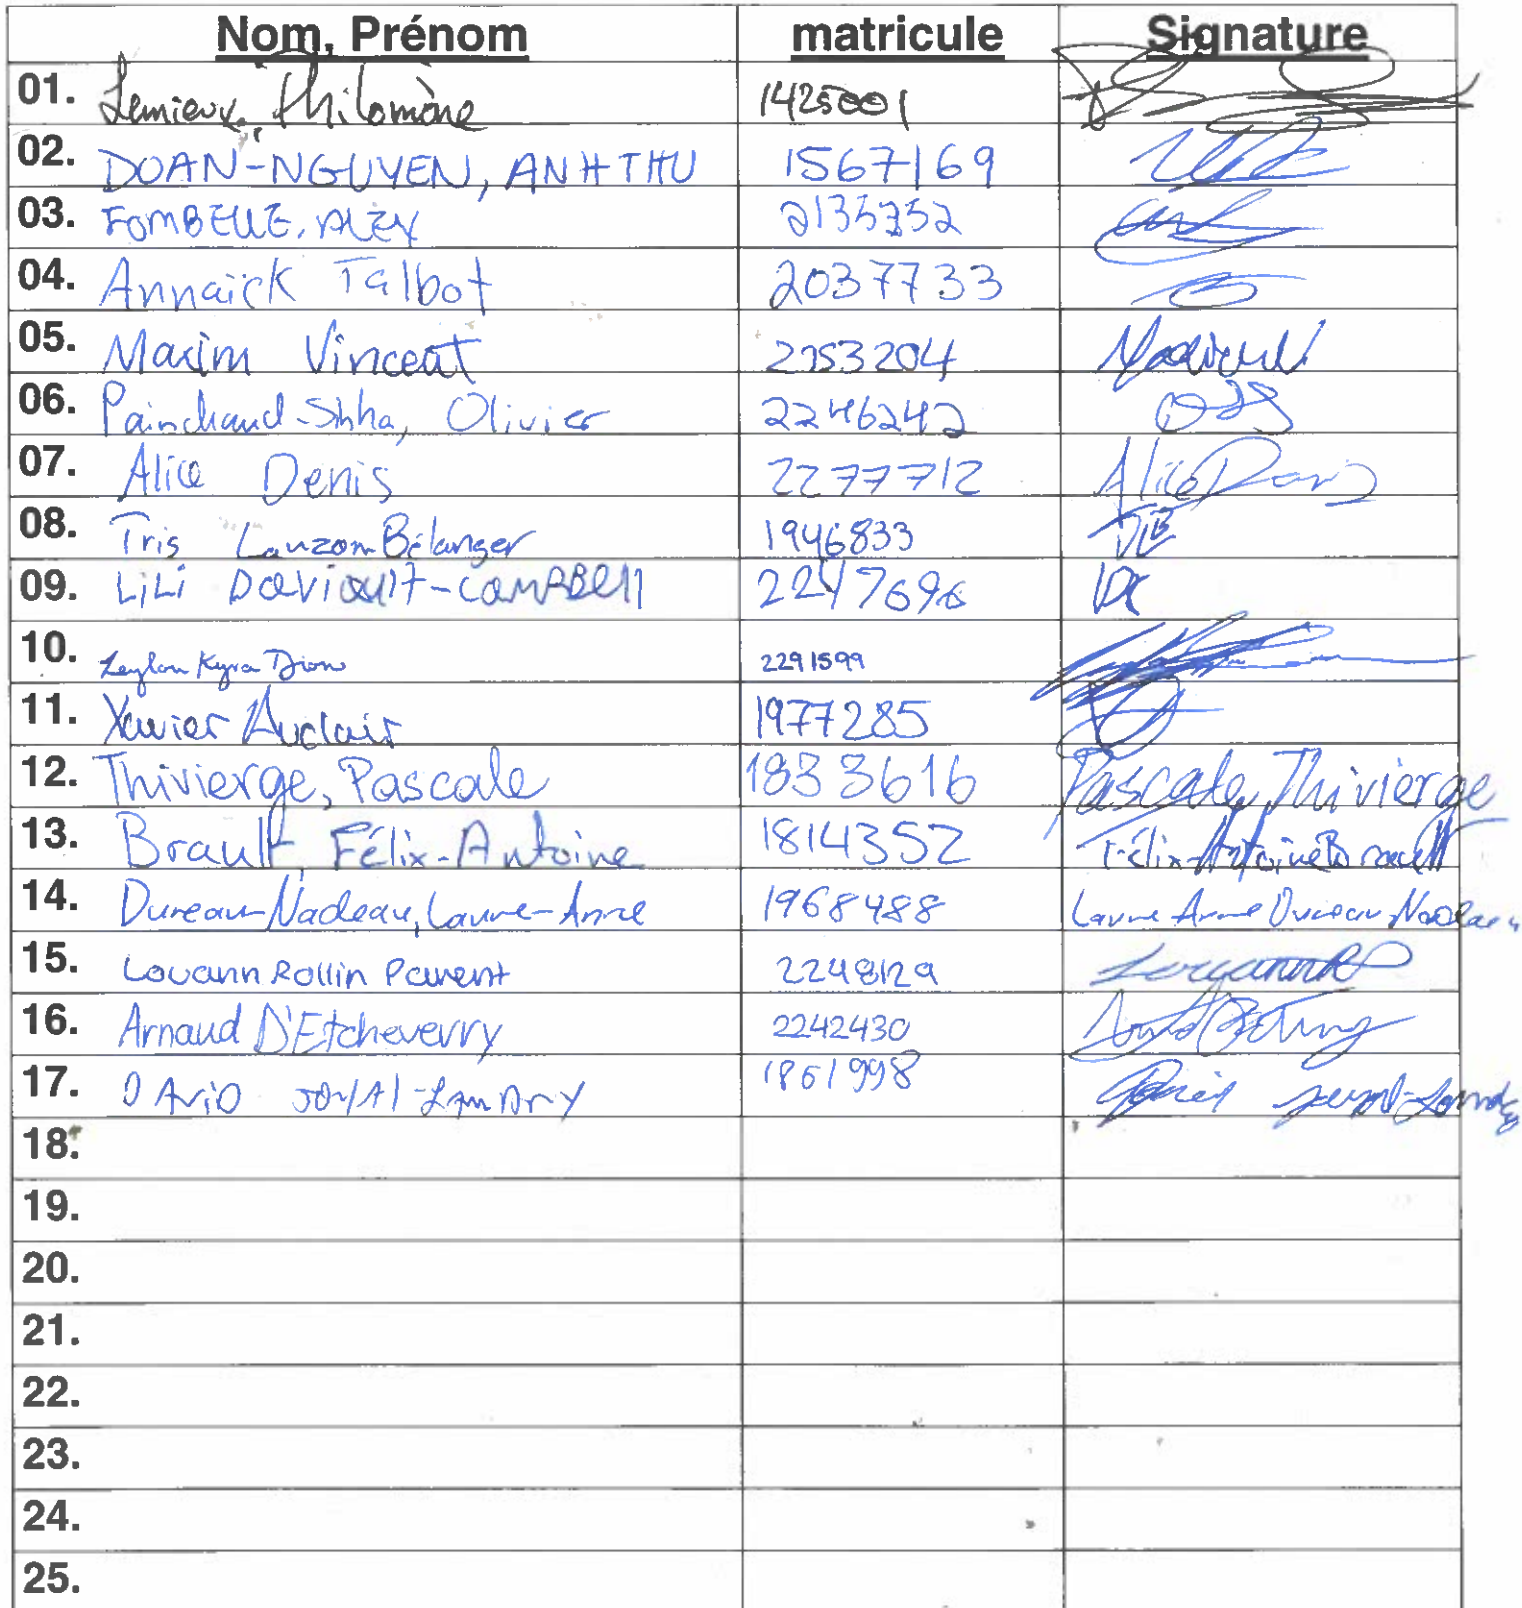 Nom, Prénom matricule Signature
01. Lemieux, Philomène 1425001
02. DOAN-NGUYEN, ANH THU 1567169
03. FOMBELLE, ALEX 2135352
04. Annaïck Talbot 2037733
05. Maxim Vincent 2153204
06. Painchaud-Sinha, Olivier 2246242
07. Alice Denis 2277712 Alice Denis
08. Tris Lauzon-Bélanger 1946833 TLB
09. LiLi Daviault-Campbell 2247696 LDC
10. Leylou Kyra Dion 2291599
11. Xavier Auclair 1977285
12. Thivierge, Pascale 1833616 Pascale Thivierge
13. Brault, Félix-Antoine 1814352 Félix-Antoine Brault
14. Dureau-Nadeau, Laure-Anne 1968488 Laure Anne Dureau Nadeau
15. Louann Rollin Parent 2248129
16. Arnaud D'Etcheverry 2242430
17. DAViD JOYAl-LANDRY 1861998
18.
19.
20.
21.
22.
23.
24.
25.